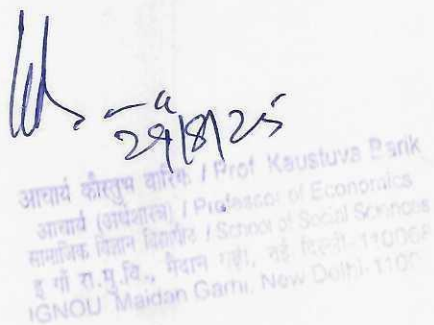 29/8/25
आचार्य कौस्तुभ बारिक / Prof Kaustuva Barik
आचार्य (अर्थशास्त्र) / Professor of Economics
सामाजिक विज्ञान विद्यापीठ / School of Social Sciences
इ गाँ रा.मु.वि., मैदान गढ़ी, नई दिल्ली-110068
IGNOU Maidan Garhi, New Delhi-110